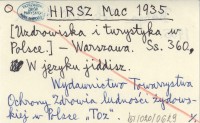 HIRSZ Mac 1935.
[Uzdrowiska i turystyka w
Polsce.] - Warszawa. Ss. 360,
W języku jiddisz.
Wydawnictwo Towarzystwa
Ochrony Zdrowia ludności żydows-
kiej w Polsce „Toz”